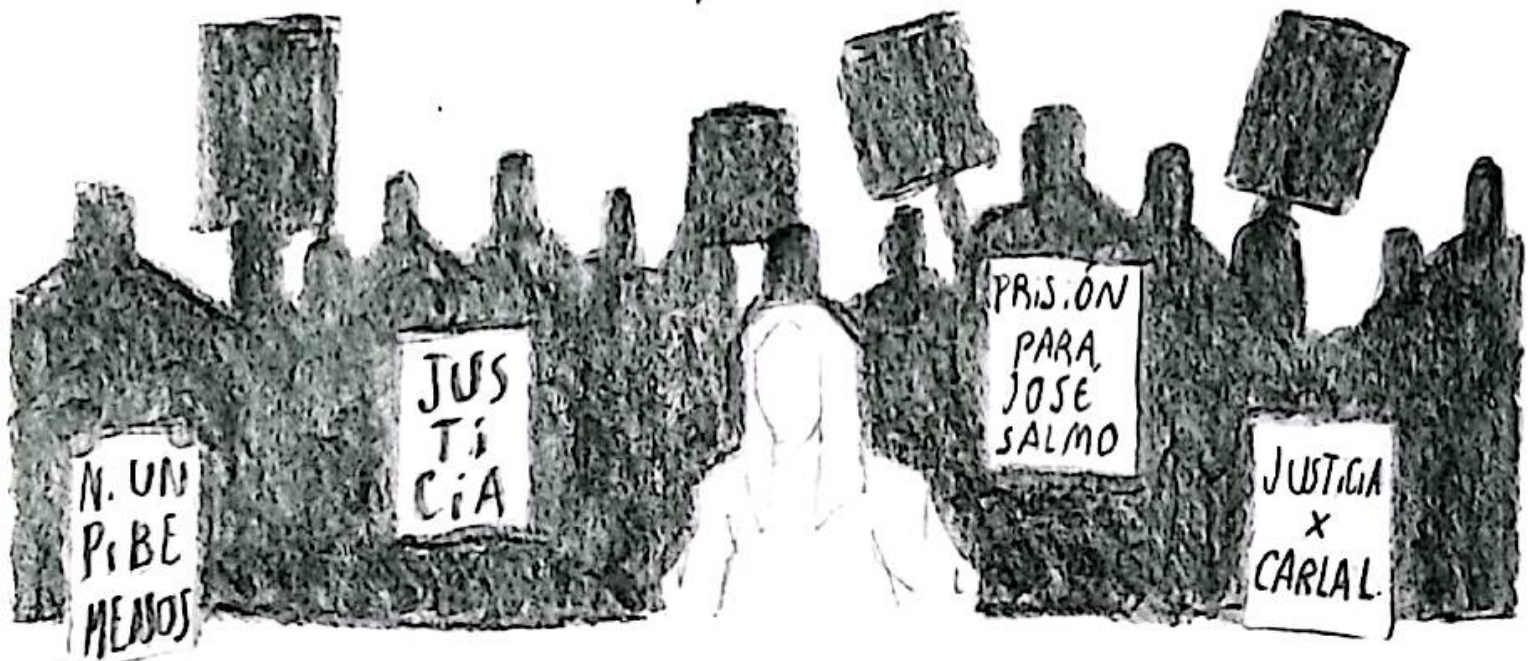 Ni UN
PiBE
MENOS
JUS
Ti
CiA
PRiSiÓN
PARA
JOSÉ
SALMO
JUSTiCiA
X
CARLA L.